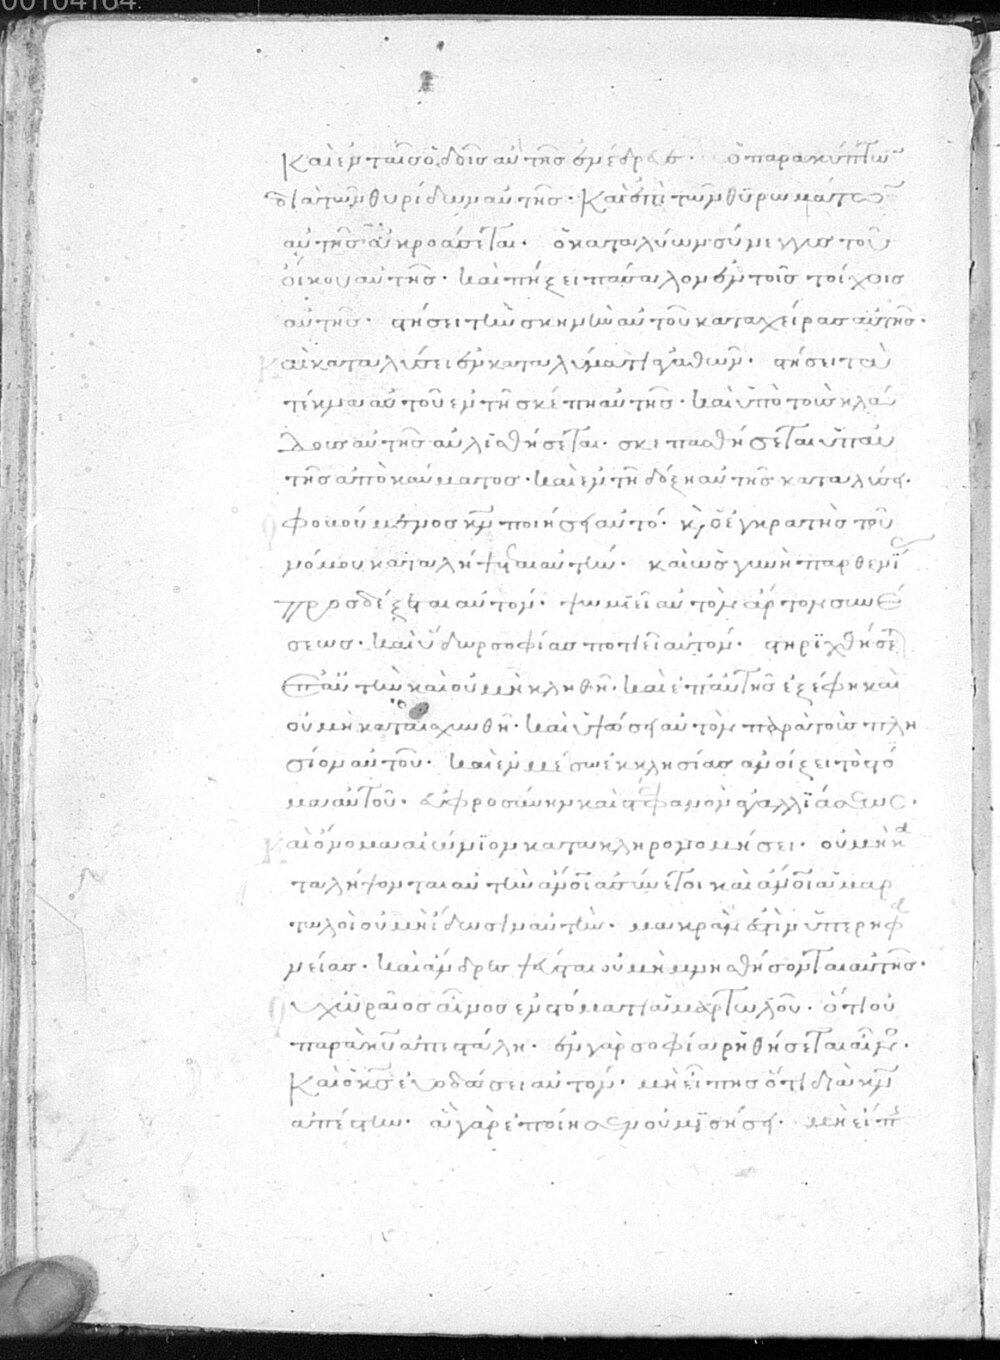 00104164
Καὶ ἐν ταῖς ὁδοῖς αὐτῆς ἐνέδρευε· ὁ παρακύπτων
διὰ τῶν θυρίδων αὐτῆς· Καὶ ἐπὶ τῶν θυρωμάτων
αὐτῆς ἀκροάσεται· ὁ καταλύων σύνεγγυς τοῦ
οἴκου αὐτῆς· καὶ πήξει πάσσαλον ἐν τοῖς τοίχοις
αὐτῆς· στήσει τὴν σκηνὴν αὐτοῦ κατὰ χείρας αὐτῆς·
Καὶ καταλύσει ἐν καταλύματι ἀγαθῶν· στήσει τὰ
τέκνα αὐτοῦ ἐν τῆ σκέπη αὐτῆς· καὶ ὑπὸ τοὺς κλά
δους αὐτῆς αὐλισθήσεται· σκεπασθήσεται ὑπ' αὐ
τῆς ἀπὸ καύματος· καὶ ἐν τῆ δόξη αὐτῆς καταλύσει·
Ὁ φοβούμενος κν ποιήσει αὐτό· κ(αὶ) ὁ ἐγκρατὴς τοῦ
νόμου καταλήψεται αὐτήν· καὶ ὡς γυνὴ παρθενί
προσδέξεται αὐτόν· ψωμιεῖ αὐτὸν ἄρτον συνέ
σεως· καὶ ὕδωρ σοφίας ποτιεῖ αὐτόν· στηριχθήσεται
ἐπ' αὐτὴν καὶ οὐ μὴ κλιθῆ· καὶ ἐπ' αὐτῆς ἐφέξη καὶ
οὐ μὴ καταισχυνθῆ· καὶ ὑψώσει αὐτὸν παρὰ τοὺς πλη
σίον αὐτοῦ· καὶ ἐν μέσω ἐκκλησίας ἀνοίξει τὸ στό
μα αὐτοῦ· εὐφροσύνην καὶ στέφανον ἀγαλλιάσεως·
Καὶ ὄνομα αἰώνιον κατακληρονομήσει· οὐ μὴ κα
ταλήψονται αὐτὴν ἄνοι ἀσύνετοι καὶ ἄνοι ἁμαρ
τωλοὶ οὐ μὴ ἴδωσιν αὐτήν· μακράν ἐστιν ὑπερηφα
νείας· καὶ ἄνδρες ψεῦσται οὐ μὴ μνησθήσονται αὐτῆς·
Οὐχ ὡραῖος αἶνος ἐν στόματι ἁμαρτωλοῦ· ὅτι οὐ
παρὰ κυ ἀπεστάλη· ἐν γὰρ σοφία ῥηθήσεται αἶνος·
Καὶ ὁ κς εὐοδώσει αὐτόν· μὴ εἴπης ὅτι διὰ κν
ἀπέστην· ἃ γὰρ ἐποίησεν οὐ μισήσει· μὴ εἴπ